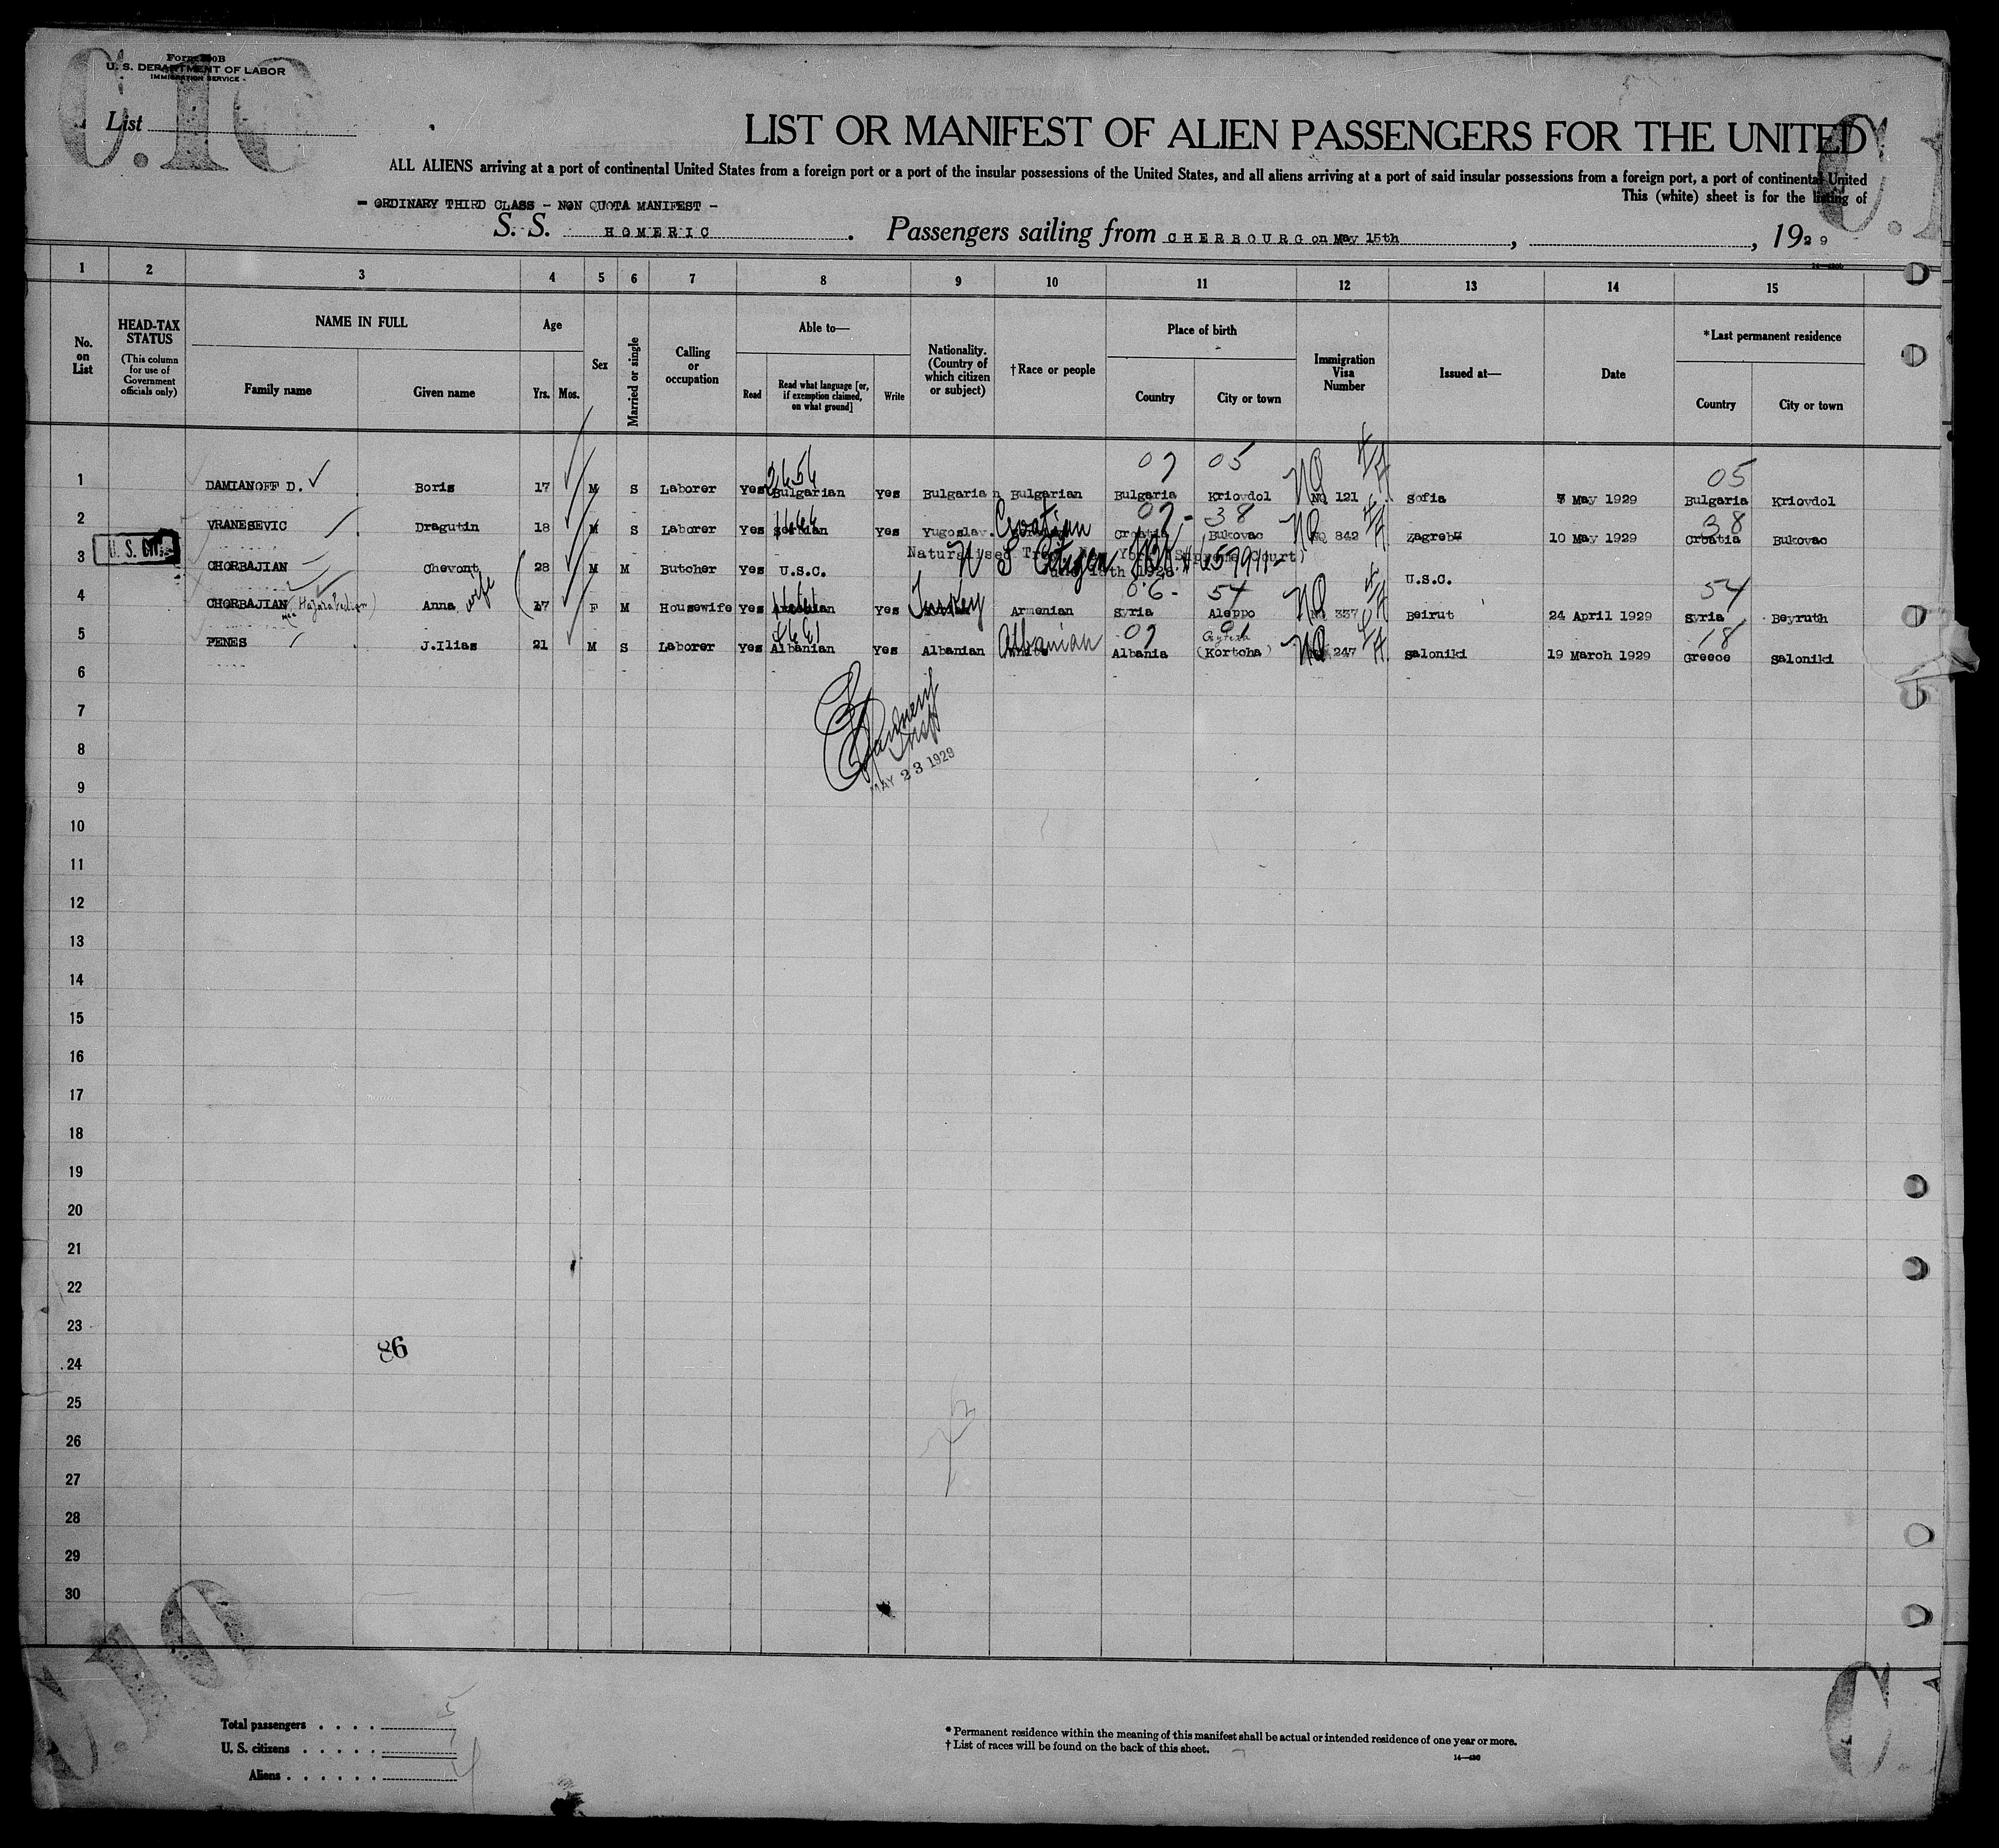 Form 500B
U. S. DEPARTMENT OF LABOR
IMMIGRATION SERVICE
C.IO
List
LIST OR MANIFEST OF ALIEN PASSENGERS FOR THE UNITED
ALL ALIENS arriving at a port of continental United States from a foreign port or a port of the insular possessions of the United States, and all aliens arriving at a port of said insular possessions from a foreign port, a port of continental United
This (white) sheet is for the listing of
- ORDINARY THIRD CLASS - NON QUOTA MANIFEST -
S. S. HOMERIC. Passengers sailing from CHERBOURG on May 15th, , 1929
1 2 3 4 5 6 7 8 9 10 11 12 13 14 15
No. on List
HEAD-TAX STATUS (This column for use of Government officials only)
NAME IN FULL
Family name Given name
Age
Yrs. Mos.
Sex
Married or single
Calling or occupation
Able to—
Read Read what language [or, if exemption claimed, on what ground] Write
Nationality. (Country of which citizen or subject)
†Race or people
Place of birth
Country City or town
Immigration Visa Number
Issued at—
Date
*Last permanent residence
Country City or town
07 05 05
1 DAMIANOFF D. Boris 17 M S Laborer Yes Bulgarian Yes Bulgarian Bulgarian Bulgaria Kriovdol NQ 121 Sofia May 1929 Bulgaria Kriovdol
07 - 38 38
2 VRANESEVIC Dragutin 18 M S Laborer Yes Yes Yugoslav. Croatian Croatia Bukovac NQ 842 Zagreb 10 May 1929 Croatia Bukovac
U. S. CIT.
3 CHORBAJIAN Chevont 28 M M Butcher Yes U.S.C. U.S.C.
06 - 54 54
4 CHORBAJIAN Anna wife 17 F M Housewife Yes Yes Turkey Armenian Syria Aleppo NQ 337 Beirut 24 April 1929 Syria Beyruth
07 18
5 PENES J.Ilias 21 M S Laborer Yes Albanian Yes Albanian Albanian Albania (Kortcha) NQ 247 Saloniki 19 March 1929 Greece Saloniki
6
7
8
MAY 23 1929
9
10
11
12
13
14
15
16
17
18
19
20
21
22
23
86
24
25
26
27
28
29
30
C.IO
Total passengers . . . . 5
U. S. citizens . . . . . 1
Aliens . . . . . . 4
* Permanent residence within the meaning of this manifest shall be actual or intended residence of one year or more.
† List of races will be found on the back of this sheet.